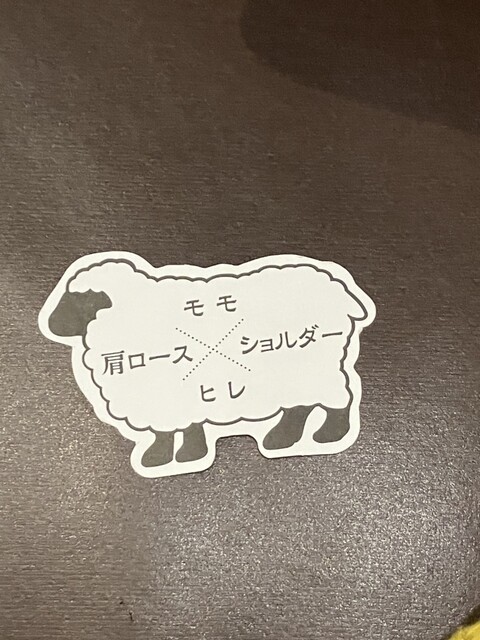 モモ
肩ロース
ショルダー
ヒレ